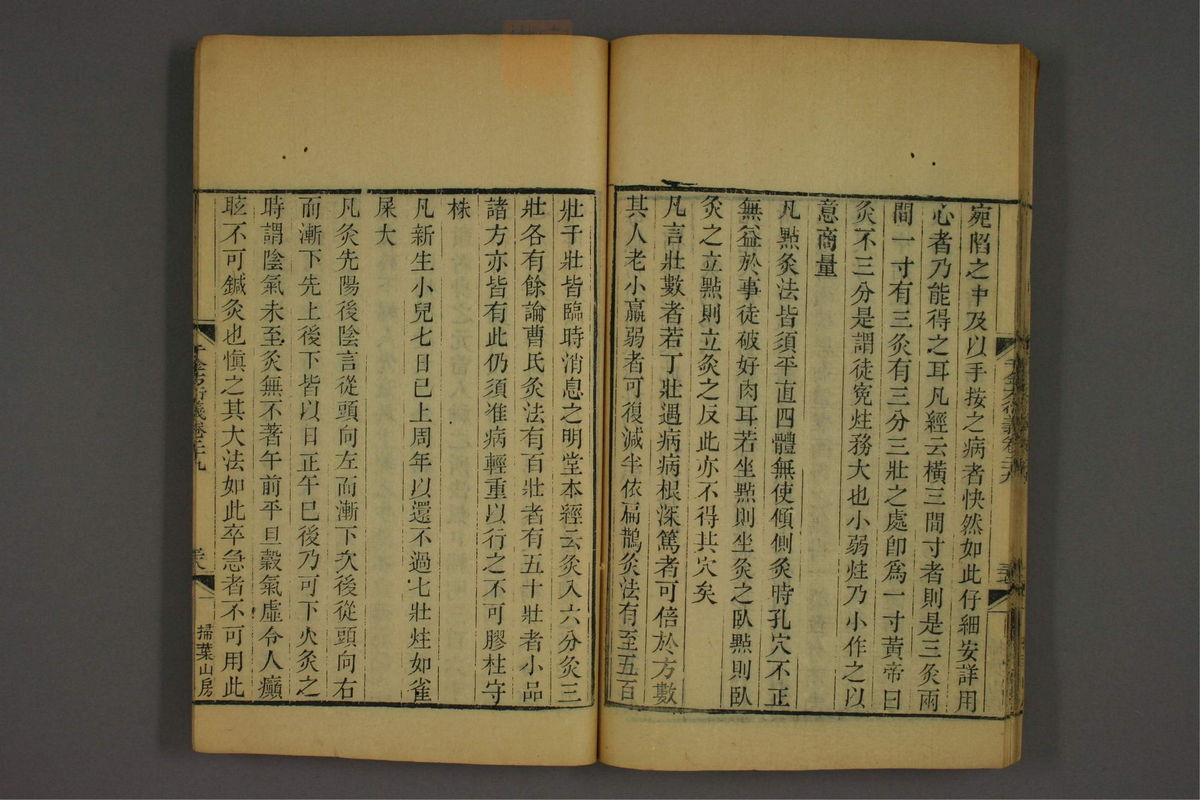 宛陷之中及以手按之病者快然如此仔細安詳用
心者乃能得之耳凡經云橫三間寸者則是三灸兩
間一寸有三灸有三分三壯之處卽爲一寸黃帝曰
灸不三分是謂徒寃炷務大也小弱炷乃小作之以
意商量
凡點灸法皆須平直四體無使傾側灸時孔穴不正
無益於事徒破好肉耳若坐點則坐灸之臥點則臥
灸之立點則立灸之反此亦不得其穴矣
凡言壯數者若丁壯遇病病根深篤者可倍於方數
其人老小羸弱者可復減半依扁鵲灸法有至五百
壯千壯皆臨時消息之明堂本經云灸入六分灸三
壯各有餘論曹氏灸法有百壯者有五十壯者小品
諸方亦皆有此仍須准病輕重以行之不可膠柱守
株
凡新生小兒七日已上周年以還不過七壯炷如雀
屎大
凡灸先陽後陰言從頭向左而漸下次後從頭向右
而漸下先上後下皆以日正午已後乃可下火灸之
時謂陰氣未至灸無不著午前平旦穀氣虛令人癲
眩不可鍼灸也愼之其大法如此卒急者不可用此
千金方衍義卷二十九
掃葉山房